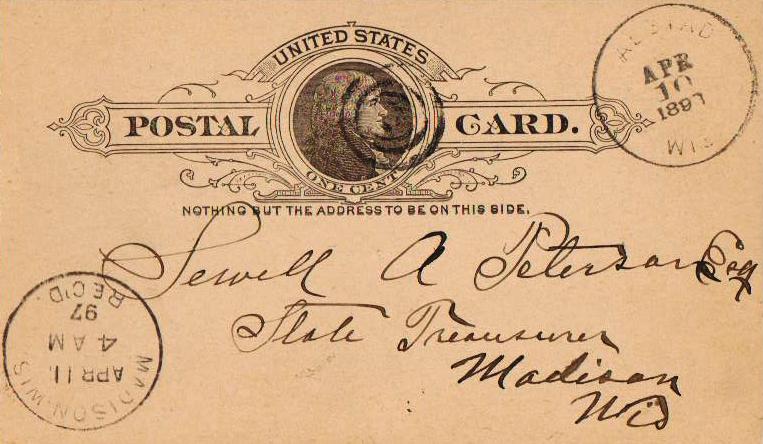 UNITED STATES
POSTAL CARD.
ONE CENT
NOTHING BUT THE ADDRESS TO BE ON THIS SIDE.
APR
10
1897
WIS
Sewell A Peterson Esq
State Treasurer
Madison
Wis
MADISON, WIS.
APR 11
4 AM
97
REC'D.